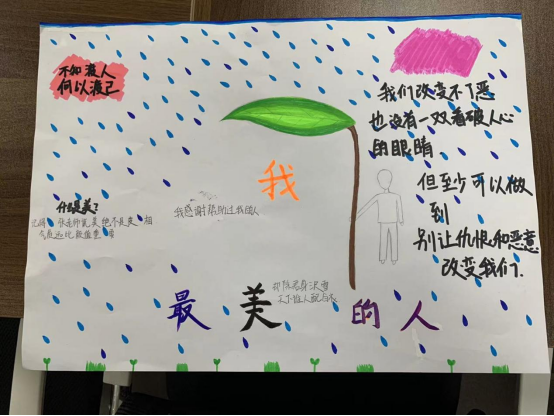 不知渡人
何以渡己
我们改变不了恶
也没有一双看破人心
的眼睛
但至少可以做
到
别让仇恨和恶意
改变我们.
我
什么是美?
我感谢帮助过我的人
最美的人